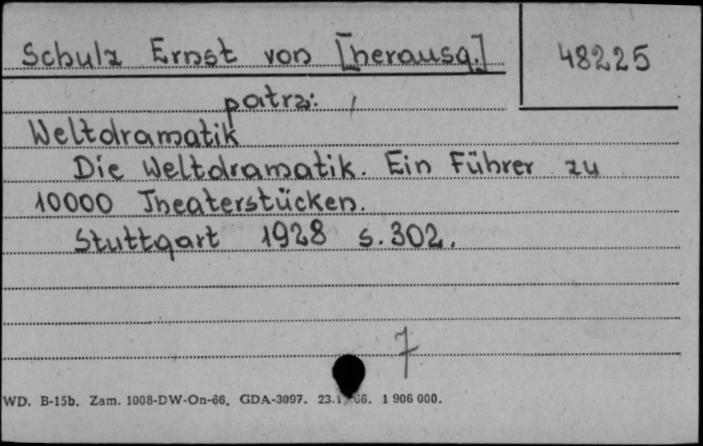 Schulz Ernst von [herausg.]
48225
patrz:
Weltdramatik
Die Weltdramatik. Ein Führer zu
10000 Theaterstücken.
Stuttgart 1928 s. 302.
7
WD. B-15b. Zam. 1008-DW-On-66. GDA-3097. 1 906 000.